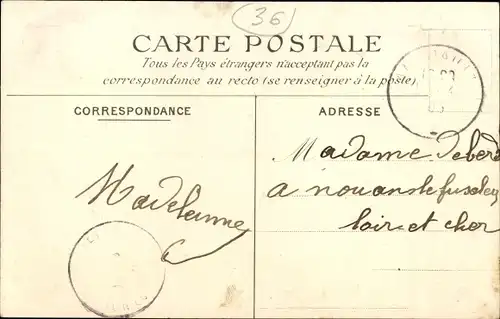 36
CARTE POSTALE
Tous les Pays étrangers n'acceptent pas la
correspondance au recto (se renseigner à la poste)
CORRESPONDANCE
ADRESSE
Madame
a nouan le fuseley
loir et cher
Madeleine